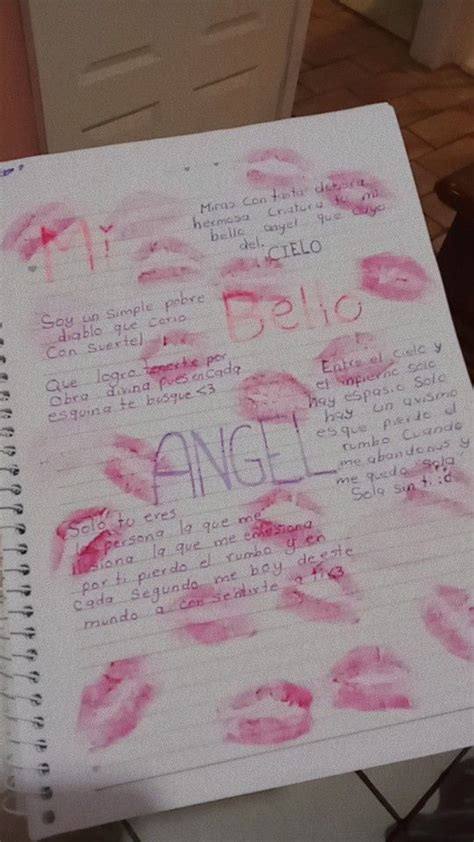 Mi
Miras con tanta dulzura
hermosa criatura tu mi
bello angel que cayo
del.
CIELO
Soy un simple pobre
diablo que corio
Con suerte!
Bello
Que logro tenerte por
Obra divina pues en cada
esquina te busque <3
Entre el cielo y
el infierno solo
hay espasio solo
hay un avismo
es que pierdo el
rumbo cuando
me abandonas y
me quedo sola
Sola sin ti :c
ANGEL
Solo tu eres
la persona la que me
ilusiona la que me emosiona
por ti pierdo el rumbo y en
cada segundo me boy de este
mundo a consentirte a ti <3